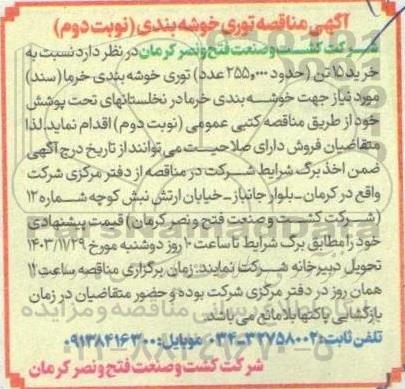 آگهی مناقصه توری خوشه بندی (نوبت دوم)
شرکت کشت و صنعت فتح و نصر کرمان در نظر دارد نسبت به
خرید ۱۵ تن (حدود ۲۵۵,۰۰۰ عدد) توری خوشه بندی خرما (سند)
مورد نیاز جهت خوشه بندی خرما در نخلستانهای تحت پوشش
خود از طریق مناقصه کتبی عمومی (نوبت دوم) اقدام نماید. لذا
متقاضیان فروش دارای صلاحیت می توانند از تاریخ درج آگهی
ضمن اخذ برگ شرایط شرکت در مناقصه از دفتر مرکزی شرکت
واقع در کرمان - بلوار جانباز - خیابان ارتش نبش کوچه شماره ۱۲
(شرکت کشت و صنعت فتح و نصر کرمان) قیمت پیشنهادی
خود را مطابق برگ شرایط تا ساعت ۱۰ روز دوشنبه مورخ ۱۴۰۳/۱۱/۲۹
تحویل دبیرخانه شرکت نمایند. زمان برگزاری مناقصه ساعت ۱۲
همان روز در دفتر مرکزی شرکت بوده و حضور متقاضیان در زمان
بازگشایی پاکتها بلامانع می باشد.
تلفن ثابت: ۳۲۷۵۸۰۰۲-۰۳۴ موبایل: ۰۹۱۳۸۴۱۶۳۰۰
شرکت کشت و صنعت فتح و نصر کرمان